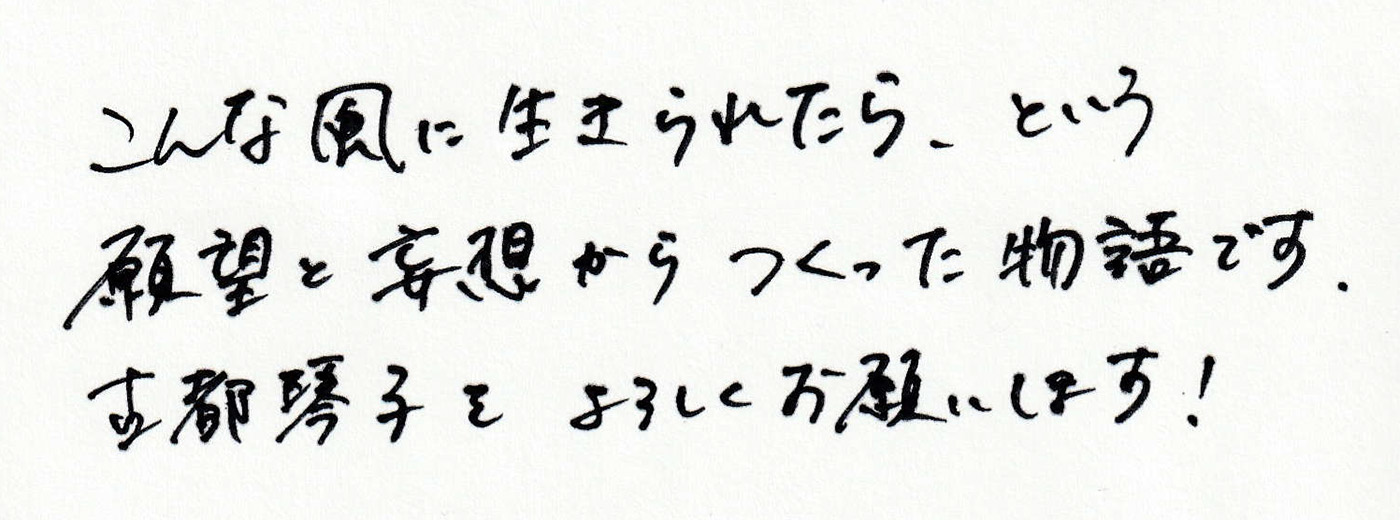 こんな風に生きられたら、という
願望と妄想からつくった物語です.
古都琴子をよろしくお願いします!